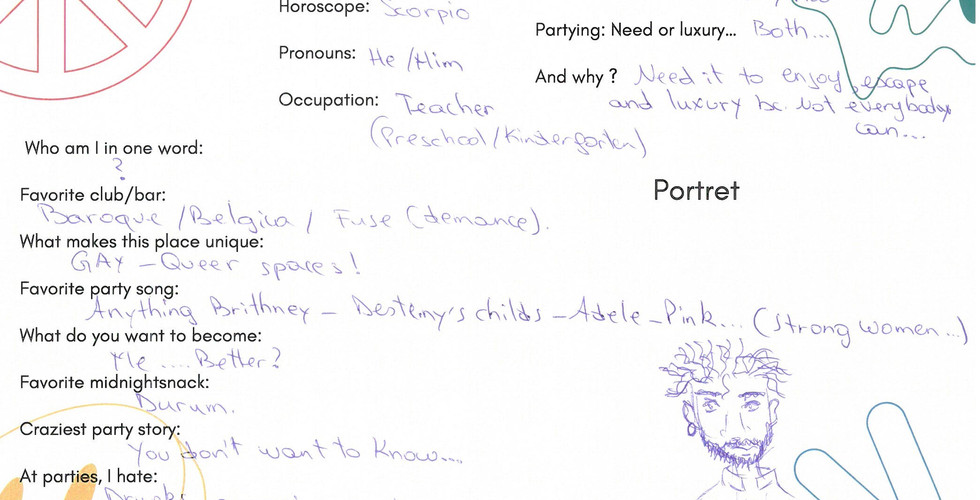 Horoscope: Scorpio
Pronouns: He/Him
Occupation: Teacher
(Preschool/Kindergarten)
Partying: Need or luxury... Both...
And why ? Need it to enjoy, escape
and luxury bc. not everybody
can...
Who am I in one word:
?
Favorite club/bar:
Baroque / Belgica / Fuse (demance).
What makes this place unique:
GAY - Queer spaces!
Favorite party song:
Anything Brithney - Destemy's childs - Adele - Pink... (strong women...)
What do you want to become:
Me .... Better?
Favorite midnightsnack:
Durum.
Craziest party story:
You don't want to know....
At parties, I hate:
Portret